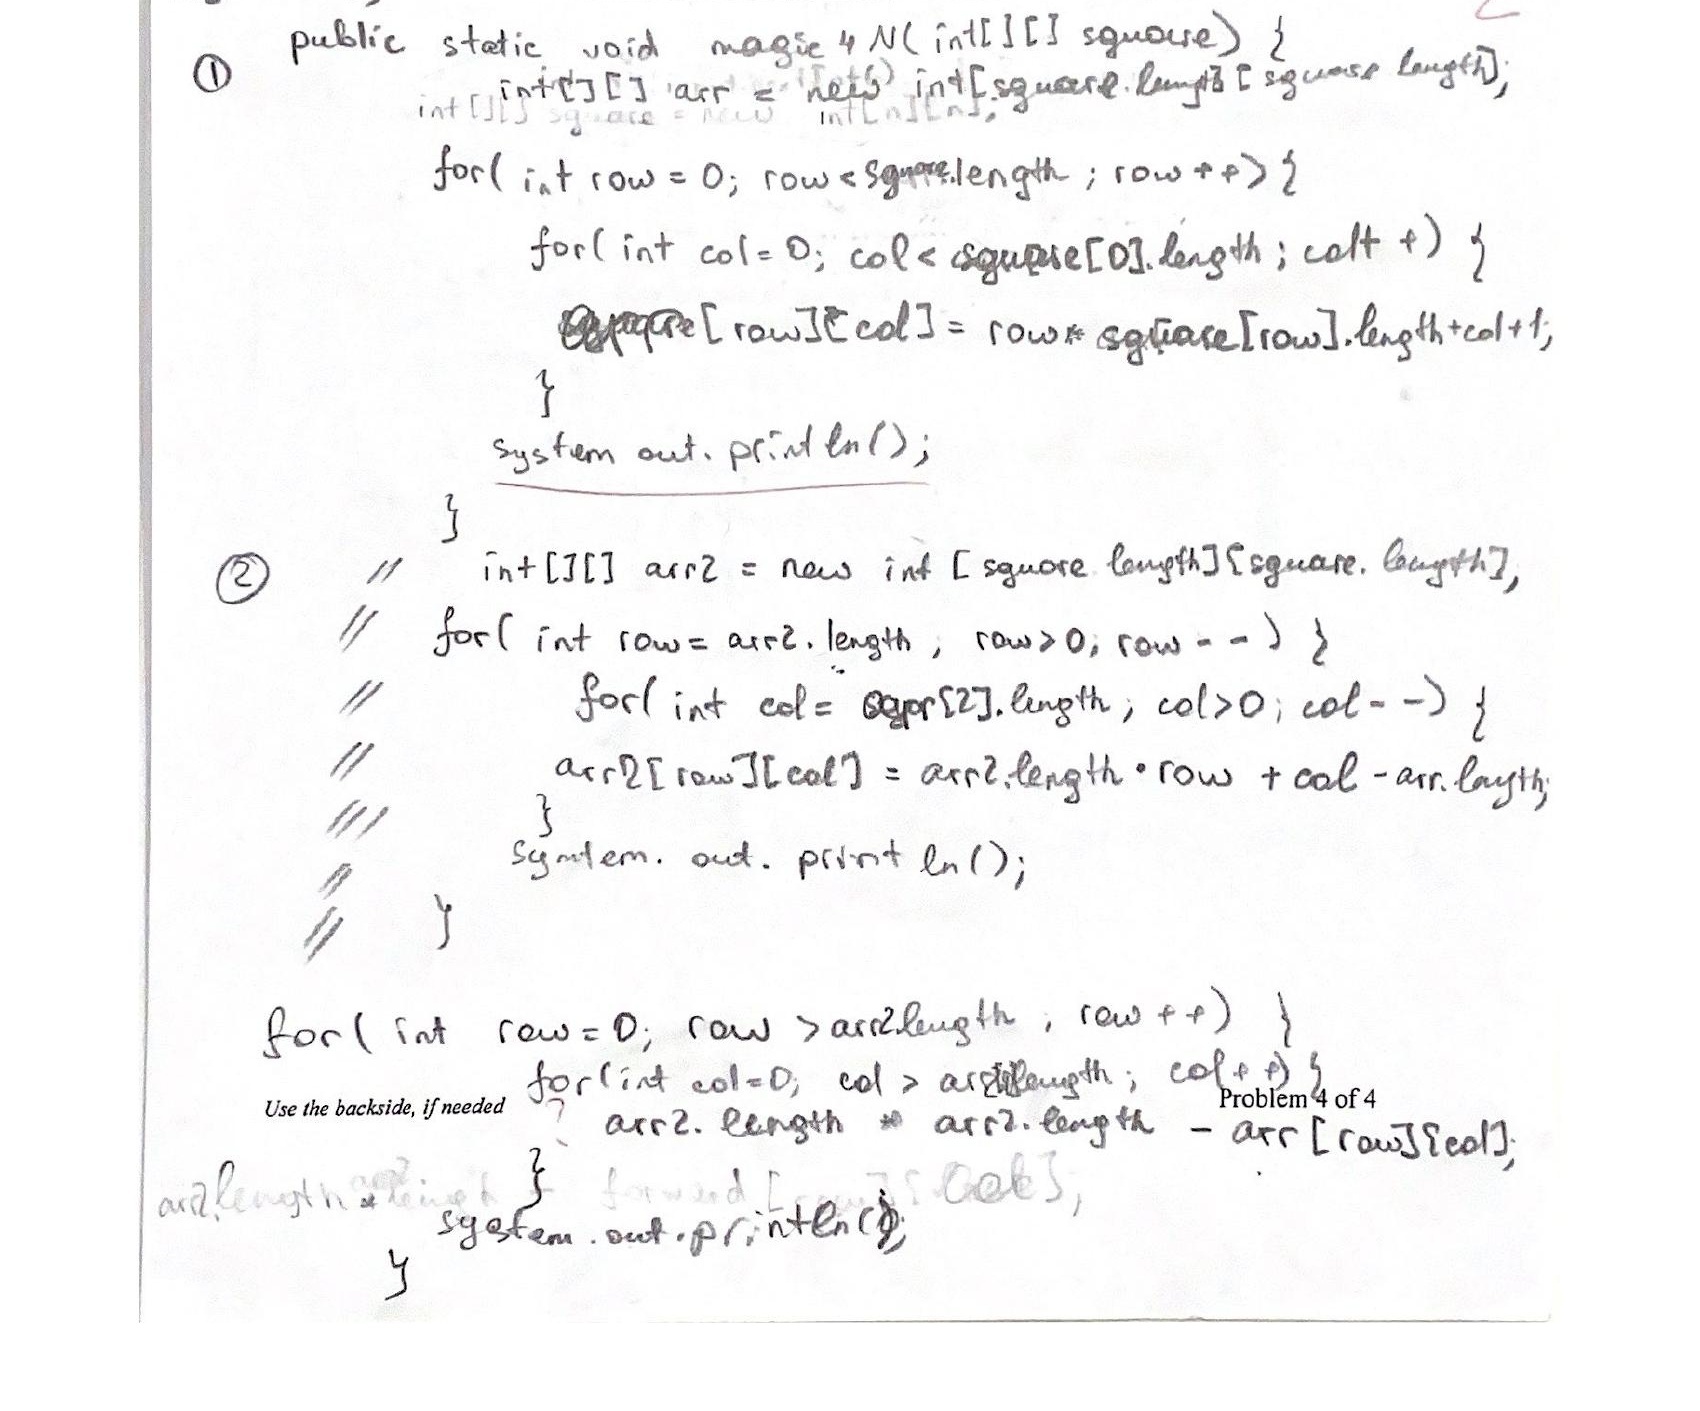 public static void magic4N(int[][] square) {
① int[][] arr = new int[square.length[square length];
int[][] square = new int[n][n];
for( int row = 0; row < square.length ; row ++) {
for( int col = 0; col < square[0].length ; col++) {
square[row][col] = row * square[row].length+col+1;
}
system out. println();
}
② // int[][] arr2 = new int [square length][square. length],
// for( int row = arr2.length , row>0; row--) }
// for( int col = [2].length; col>0; col--) {
// arr2[row][col] = arr2.length • row + col - arr.length;
/// }
system. out. println();
// }
for( int row=0; row > arr2length , row ++) }
for(int col=0; col > length; col++) {
Use the backside, if needed
Problem 4 of 4
? arr2. length * arr2. length - arr [row][col];
}
arr2.length * forward [row][col];
system.out.println();
}